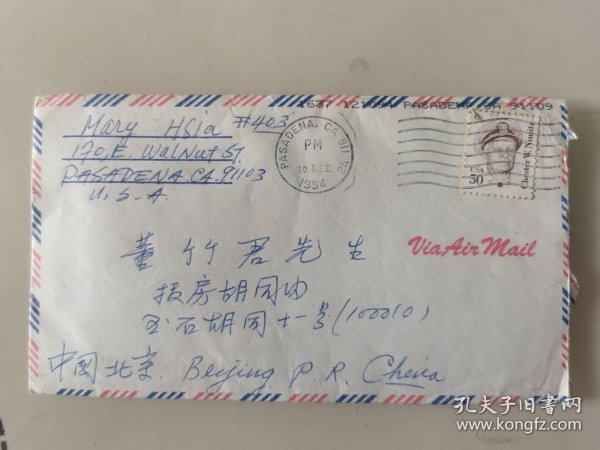 PASADENA CA 91109
Mary Hsia #403
170, E. WalNut ST.
PASADENA. CA. 91103
U. S. A.
PASADENA, CA 911
PM
10 DEC
1994
USA
50
Chester W. Nimitz
Via Air Mail
董竹君先生
报房胡同内
玉石胡同十一号(100010)
中国.北京. Beijing P. R. China
孔夫子旧书网
www.kongfz.com